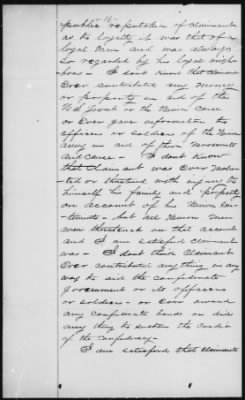 16
public reputation of claimant
as to loyalty it was that of a
loyal man and was always
so regarded by his loyal neigh-
bors - I dont know that claimant
Ever contributed any money
or property in aid of the
U.S. Govnt or the Union Cause
or Ever gave information to
officers or soldiers of the Union
army in aid of their movements
and cause - I dont know
that claimant was Ever
or threatened with injury to
himself his family and property
on account of his Union sen-
timents - but all Union men
were threatened on that account
and I am satisfied claimant
was - I dont think claimant
Ever contributed any thing in any
way to aid the confederate
government or its officers
or soldiers - or Ever owned
any confederate bonds or did
any thing to sustain the credit
of the confederacy -
I am satisfied that claimants